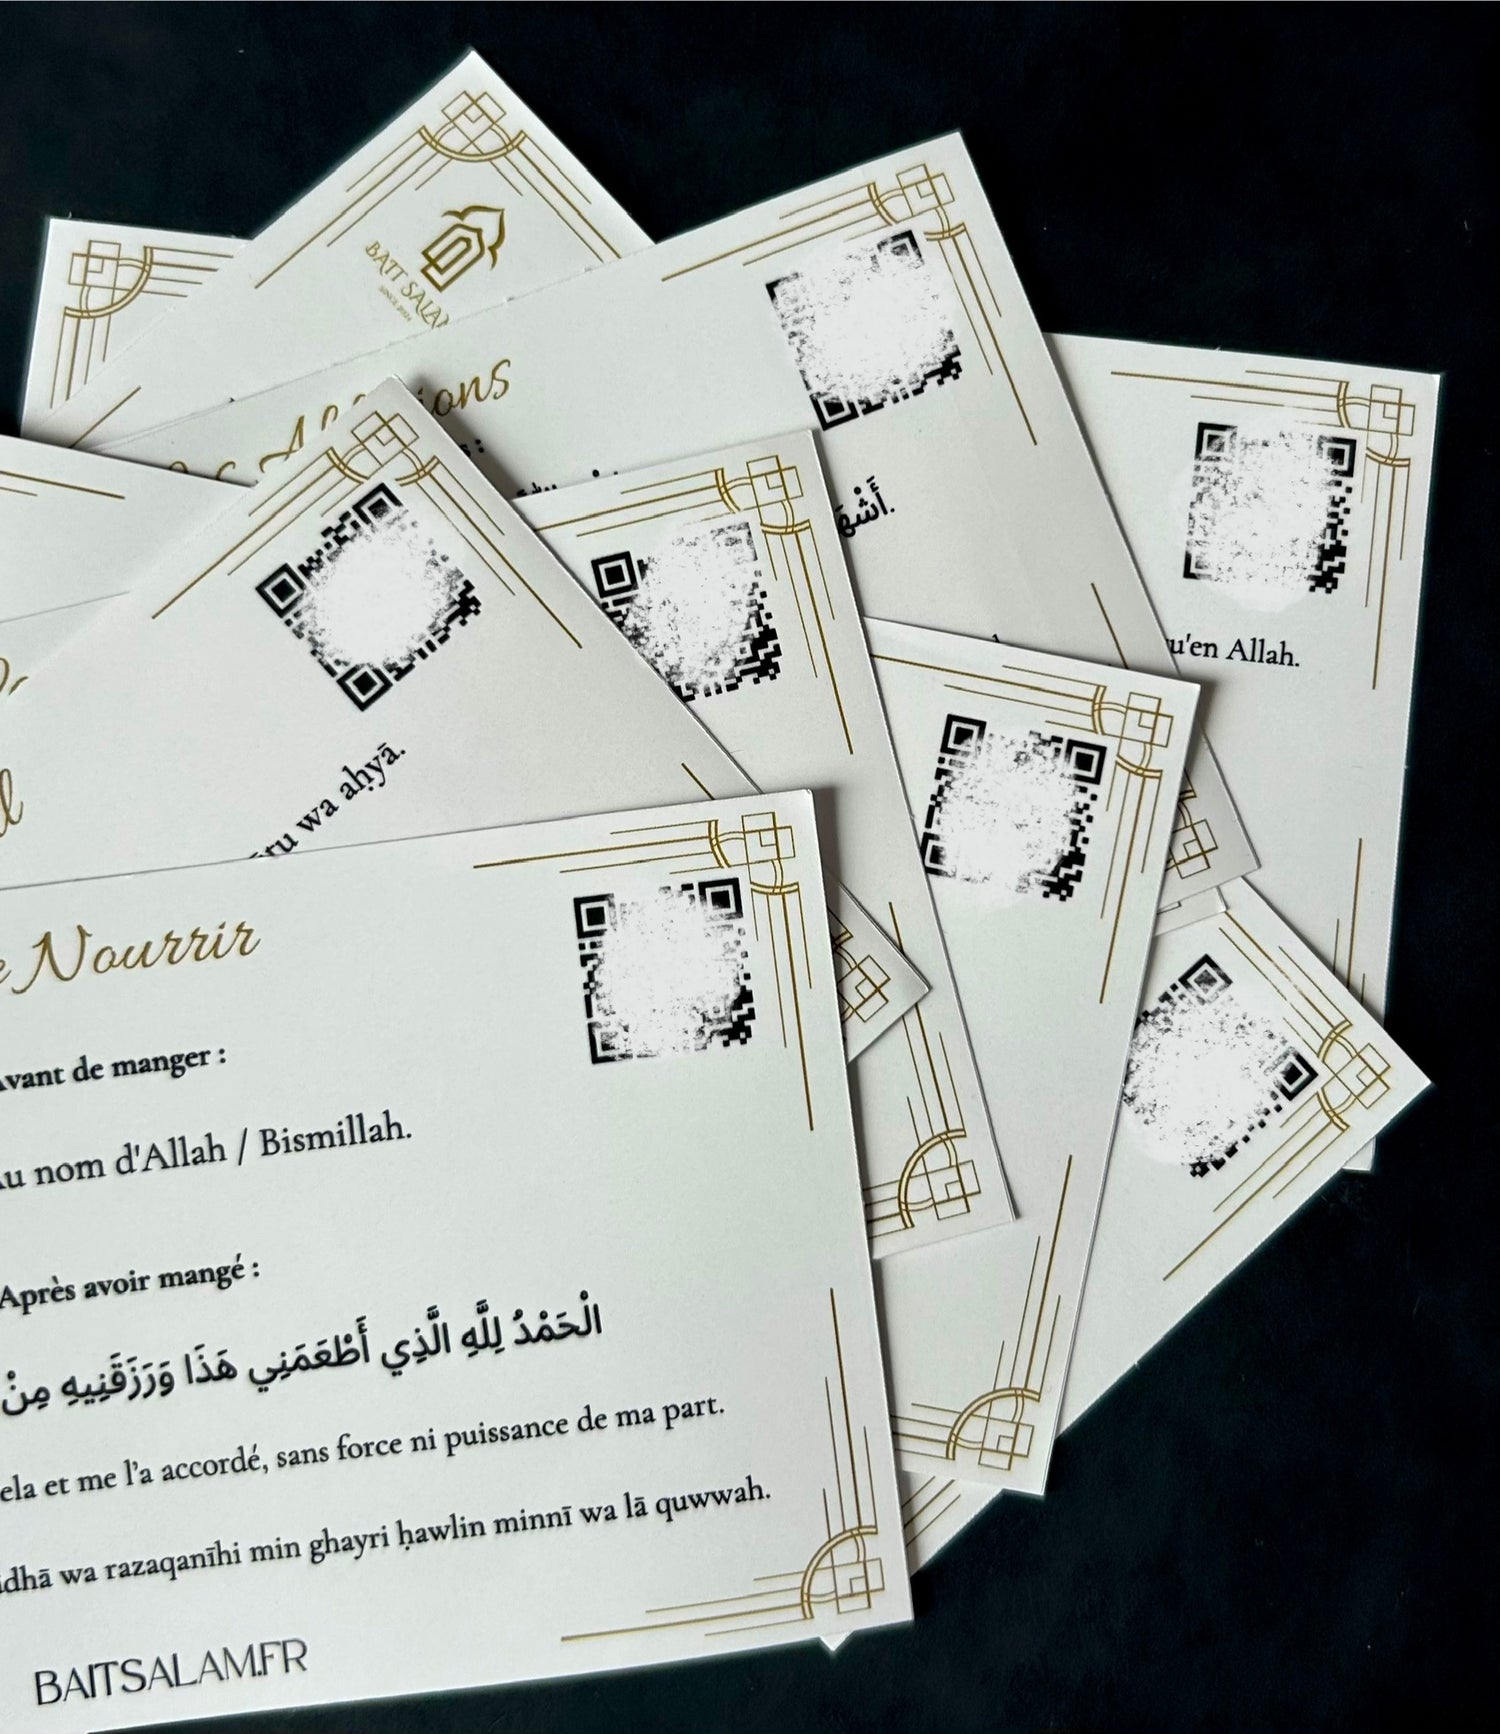 BAIT SALAM
SINCE 2024
أَشْهَ.
u'en Allah.
ru wa aḥyā.
Nourrir
Avant de manger :
Au nom d'Allah / Bismillah.
Après avoir mangé :
الْحَمْدُ لِلَّهِ الَّذِي أَطْعَمَنِي هَذَا وَرَزَقَنِيهِ مِنْ
ela et me l'a accordé, sans force ni puissance de ma part.
dhā wa razaqanīhi min ghayri ḥawlin minnī wa lā quwwah.
BAITSALAM.FR